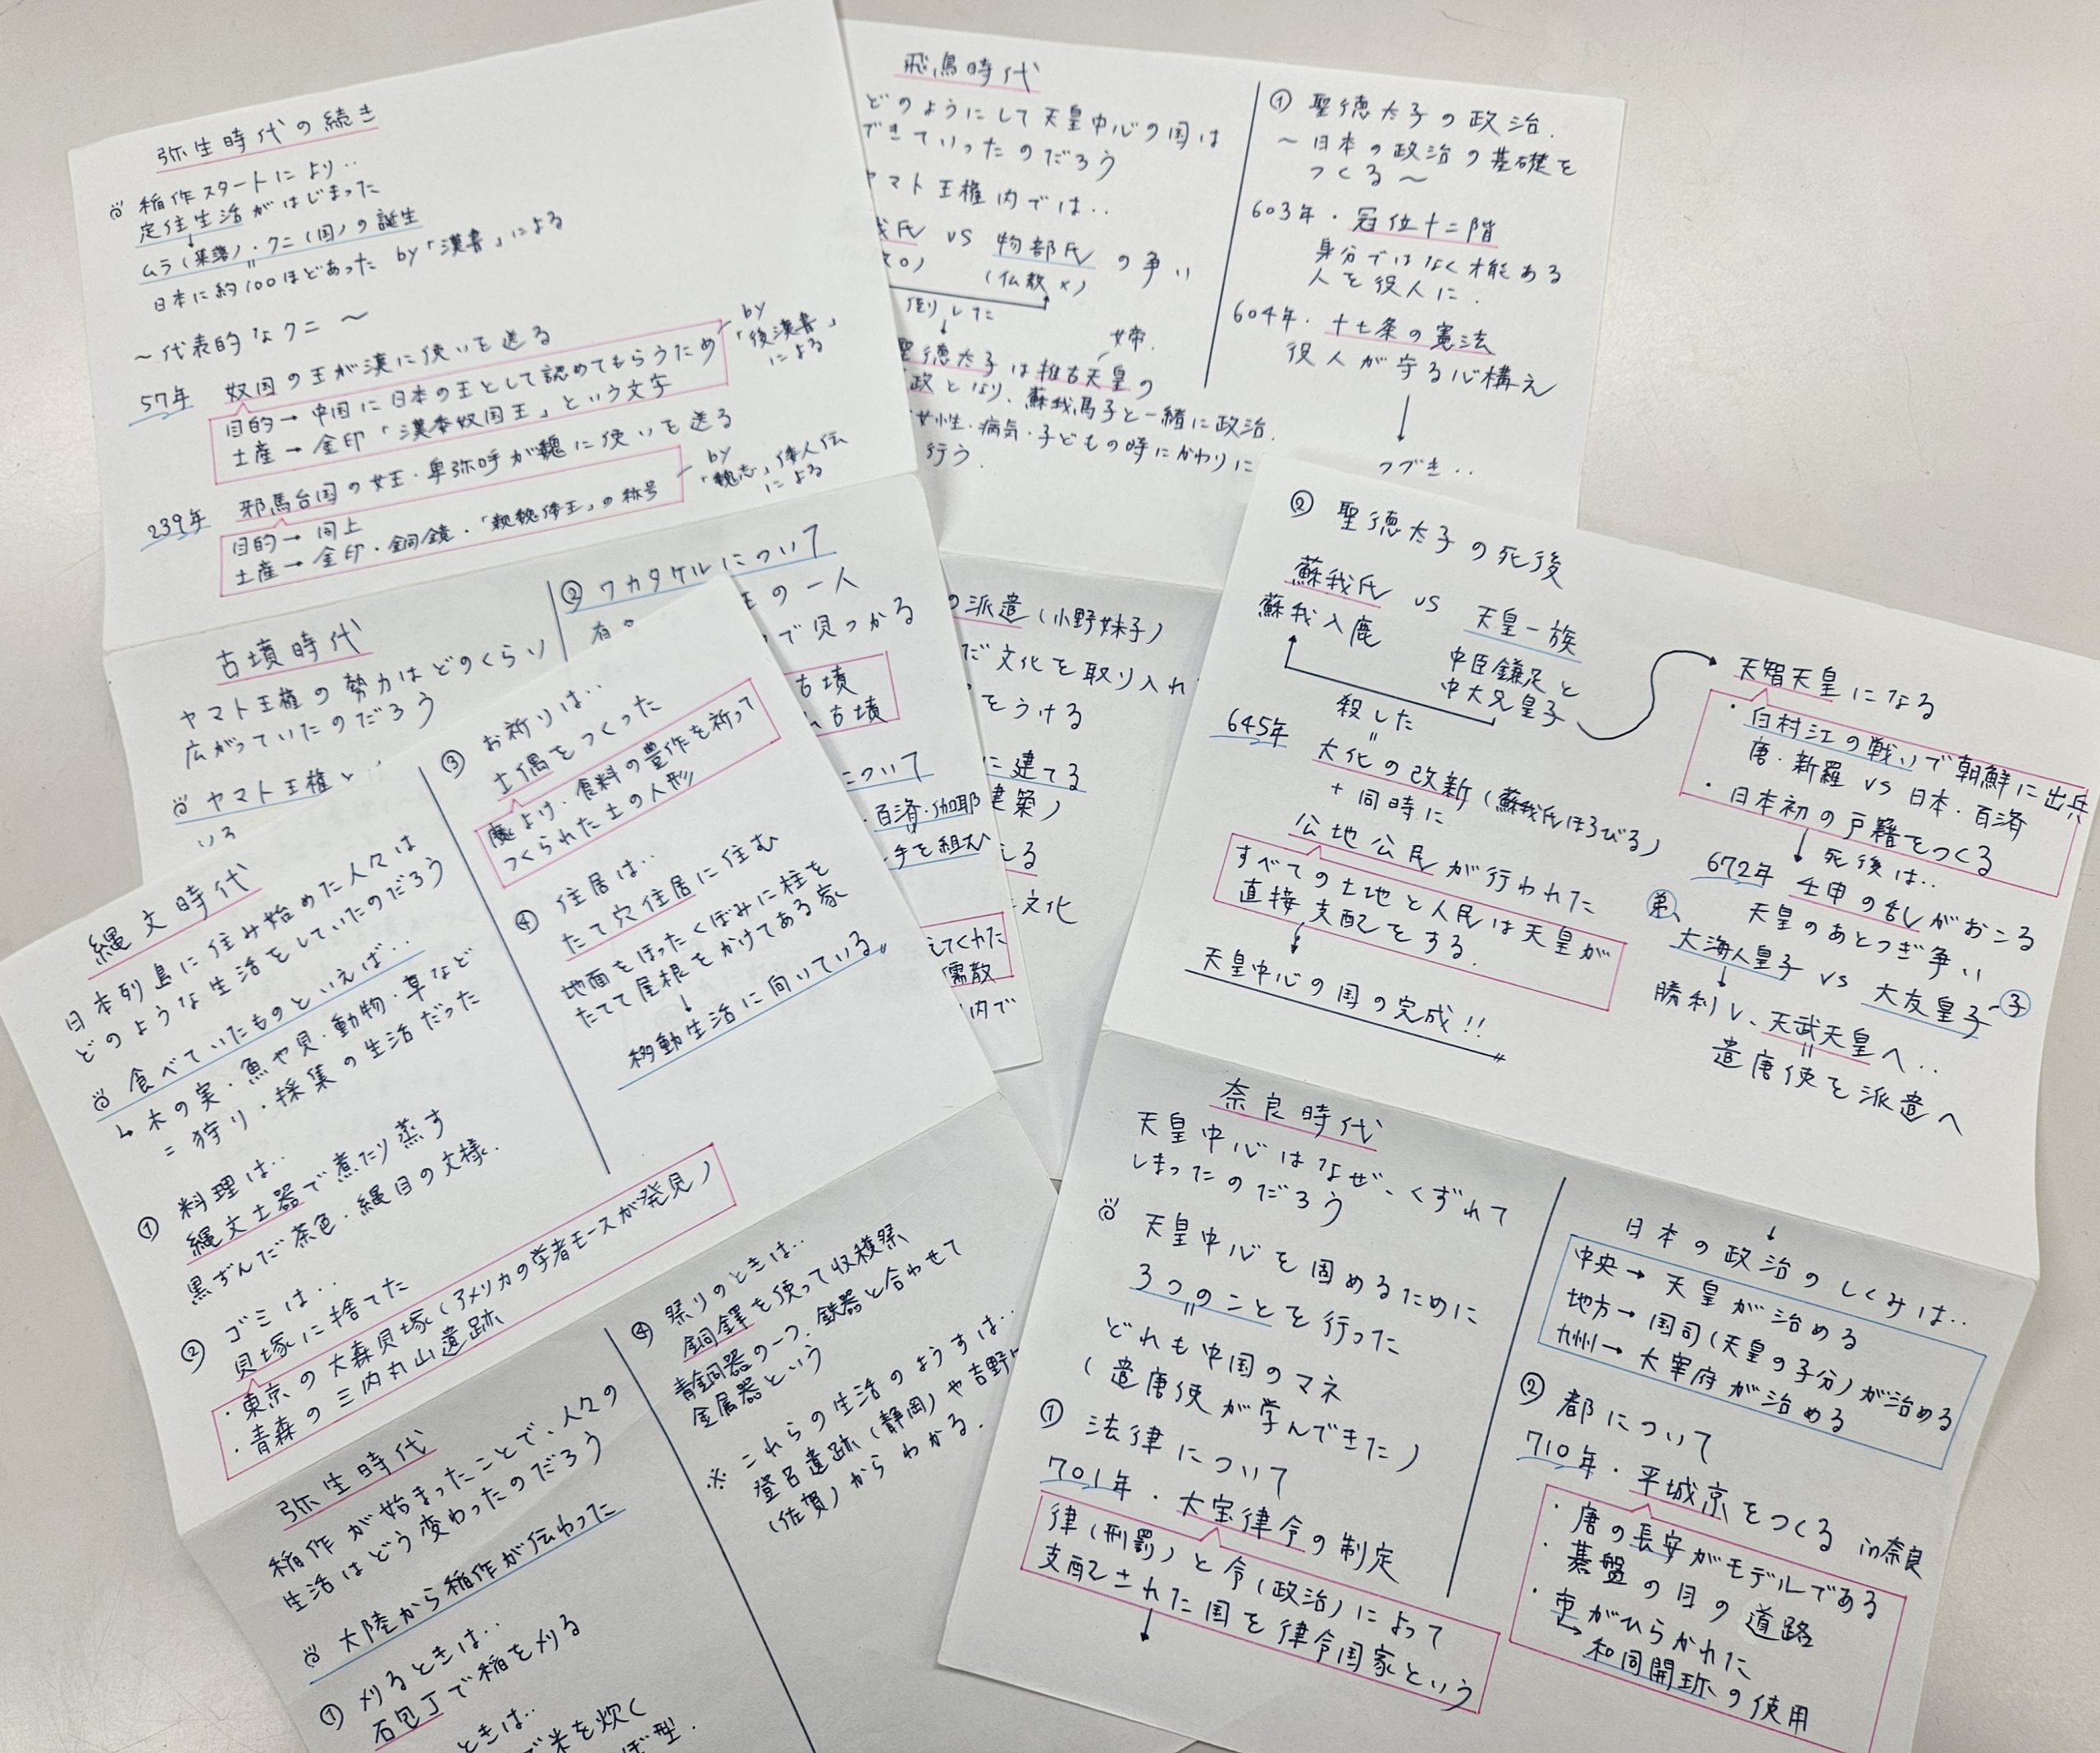 弥生時代の続き
稲作スタートにより‥
定住生活がはじまった
↓
ムラ(集落)・クニ(国)の誕生
〃
日本に約100ほどあった by「漢書」による
〜代表的なクニ〜
57年 奴国の王が漢に使いを送る
目的→中国に日本の王として認めてもらうため
土産→金印「漢委奴国王」という文字
by
「後漢書」
による
239年 邪馬台国の女王・卑弥呼が魏に使いを送る
目的→同上
土産→金印・銅鏡・「親魏倭王」の称号
by
「魏志」倭人伝
による
古墳時代
ヤマト王権の勢力はどのくらい
広がっていたのだろう
ヤマト王権と
いろ
② ワカタケルについて
王の一人
で見つかる
古墳
古墳
について
・百済・伽耶
手を組み
飛鳥時代
どのようにして天皇中心の国は
できていったのだろう
ヤマト王権内では‥
我氏 vs 物部氏 の争い
(仏教×)
倒した
↓
女帝.
聖徳太子は推古天皇の
政となり、蘇我馬子と一緒に政治.
女性・病気・子どもの時にかわりに
行う.
① 聖徳太子の政治.
〜日本の政治の基礎を
つくる〜
603年・冠位十二階
身分ではなく才能ある
人を役人に.
604年・十七条の憲法
役人が守る心構え
↓
つづき‥
の派遣(小野妹子)
だ文化を取り入れ
をうける
に建てる
建築)
える
文化
えてくれた
儒教
内で
② 聖徳太子の死後
蘇我氏 vs 天皇一族
蘇我入鹿
中臣鎌足と
中大兄皇子
殺した
〃
645年 大化の改新(蘇我氏ほろびる)
+同時に
公地公民が行われた
すべての土地と人民は天皇が
直接支配をする.
↓
天皇中心の国の完成!!
天智天皇になる
・白村江の戦いで朝鮮に出兵
唐・新羅 vs 日本・百済
・日本初の戸籍をつくる
↓死後は‥
672年 壬申の乱がおこる
天皇のあとつぎ争い
弟
大海人皇子 vs 大友皇子-子
↓
勝利し、天武天皇へ‥
〃
遣唐使を派遣へ
縄文時代
日本列島に住み始めた人々は
どのような生活をしていたのだろう
食べていたものといえば‥
↳木の実・魚や貝・動物・草など
=狩り・採集の生活だった
① 料理は‥
縄文土器で煮たり蒸す
黒ずんだ茶色・縄目の文様.
② ゴミは‥
貝塚に捨てた
・東京の大森貝塚(アメリカの学者モースが発見)
・青森の三内丸山遺跡
③ お祈りは‥
土偶をつくった
魔よけ・食料の豊作を祈って
つくられた土の人形
④ 住居は‥
たて穴住居に住む
地面をほったくぼみに柱を
たてて屋根をかけてある家
↓
移動生活に向いている〃
弥生時代
稲作が始まったことで、人々の
生活はどう変わったのだろう
大陸から稲作が伝わった
① 刈るときは‥
石包丁で稲を刈る
ときは‥
で米を炊く
ぼ型.
④ 祭りのときは‥
銅鐸を使って収穫祭
青銅器の一つ. 鉄器と合わせて
金属器という
※ これらの生活のようすは‥
登呂遺跡(静岡)や吉野
(佐賀)からわかる.
奈良時代
天皇中心はなぜ、くずれて
しまったのだろう
天皇中心を固めるために
3つのことを行った
〃
どれも中国のマネ
(遣唐使が学んできた)
① 法律について
701年・大宝律令の制定
律(刑罰)と令(政治)によって
支配された国を律令国家という
↓
↓
日本の政治のしくみは‥
中央→天皇が治める
地方→国司(天皇の子分)が治める
九州→大宰府が治める
② 都について
710年・平城京をつくる in奈良
・唐の長安がモデルである
・碁盤の目の道路
・市がひらかれた
↳和同開珎の使用